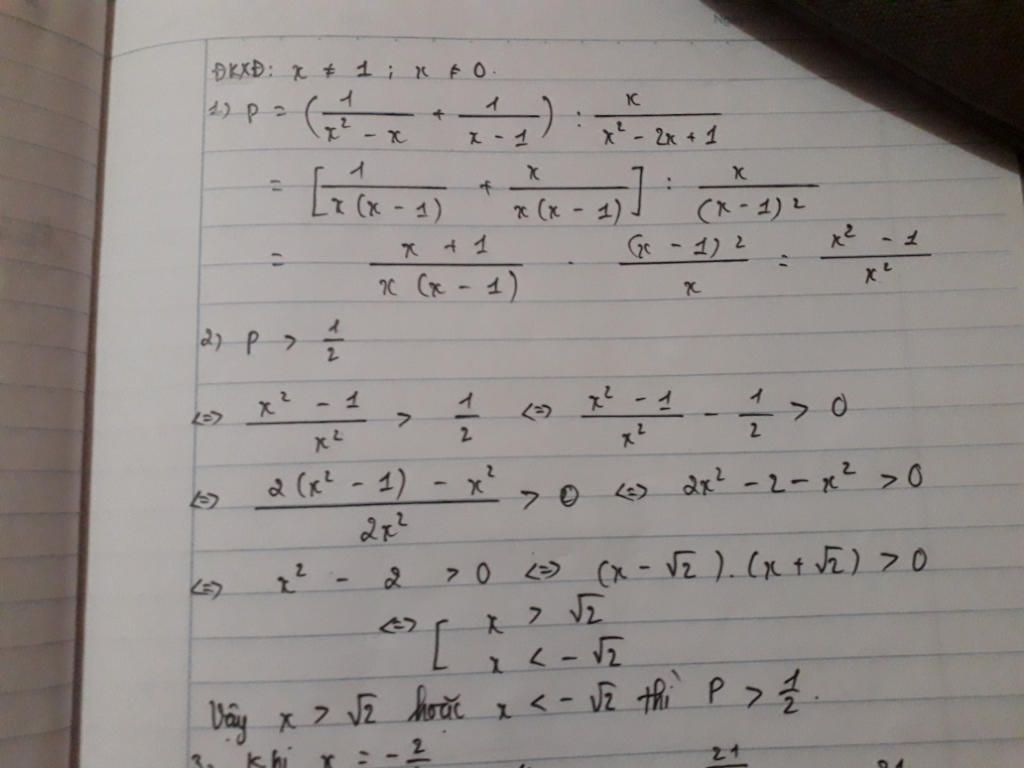 ĐKXĐ: x ≠ 1 ; x ≠ 0.
1) P = (1/(x² - x) + 1/(x - 1)) : x/(x² - 2x + 1)
= [1/(x(x - 1)) + x/(x(x - 1))] : x/(x - 1)²
= (x + 1)/(x(x - 1)) . (x - 1)²/x = (x² - 1)/x²
2) P > 1/2
<=> (x² - 1)/x² > 1/2 <=> (x² - 1)/x² - 1/2 > 0
<=> (2(x² - 1) - x²)/(2x²) > 0 <=> 2x² - 2 - x² > 0
<=> x² - 2 > 0 <=> (x - √2).(x + √2) > 0
<=> [ x > √2
x < -√2
Vậy x > √2 hoặc x < -√2 thì P > 1/2.
3. Khi x = - 2 21